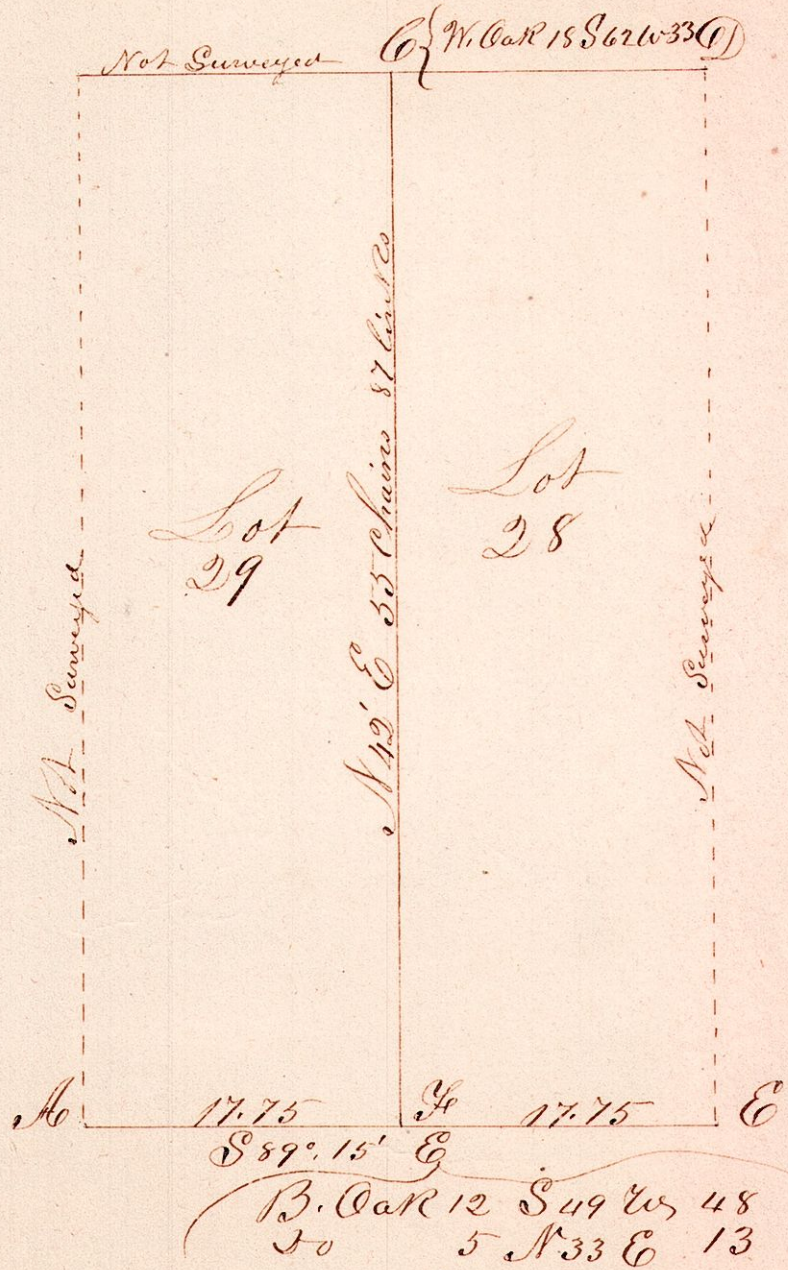 Not Surveyed C { W. Oak 18 S 62 W 33 D
Not Surveyed
N 42' E 55 Chains 87 links
Not Surveyed
Lot
29
Lot
28
A 17.75 F 17.75 E
S 89°. 15' E
B. Oak 12 S 49 W 48
Do 5 N 33 E 13